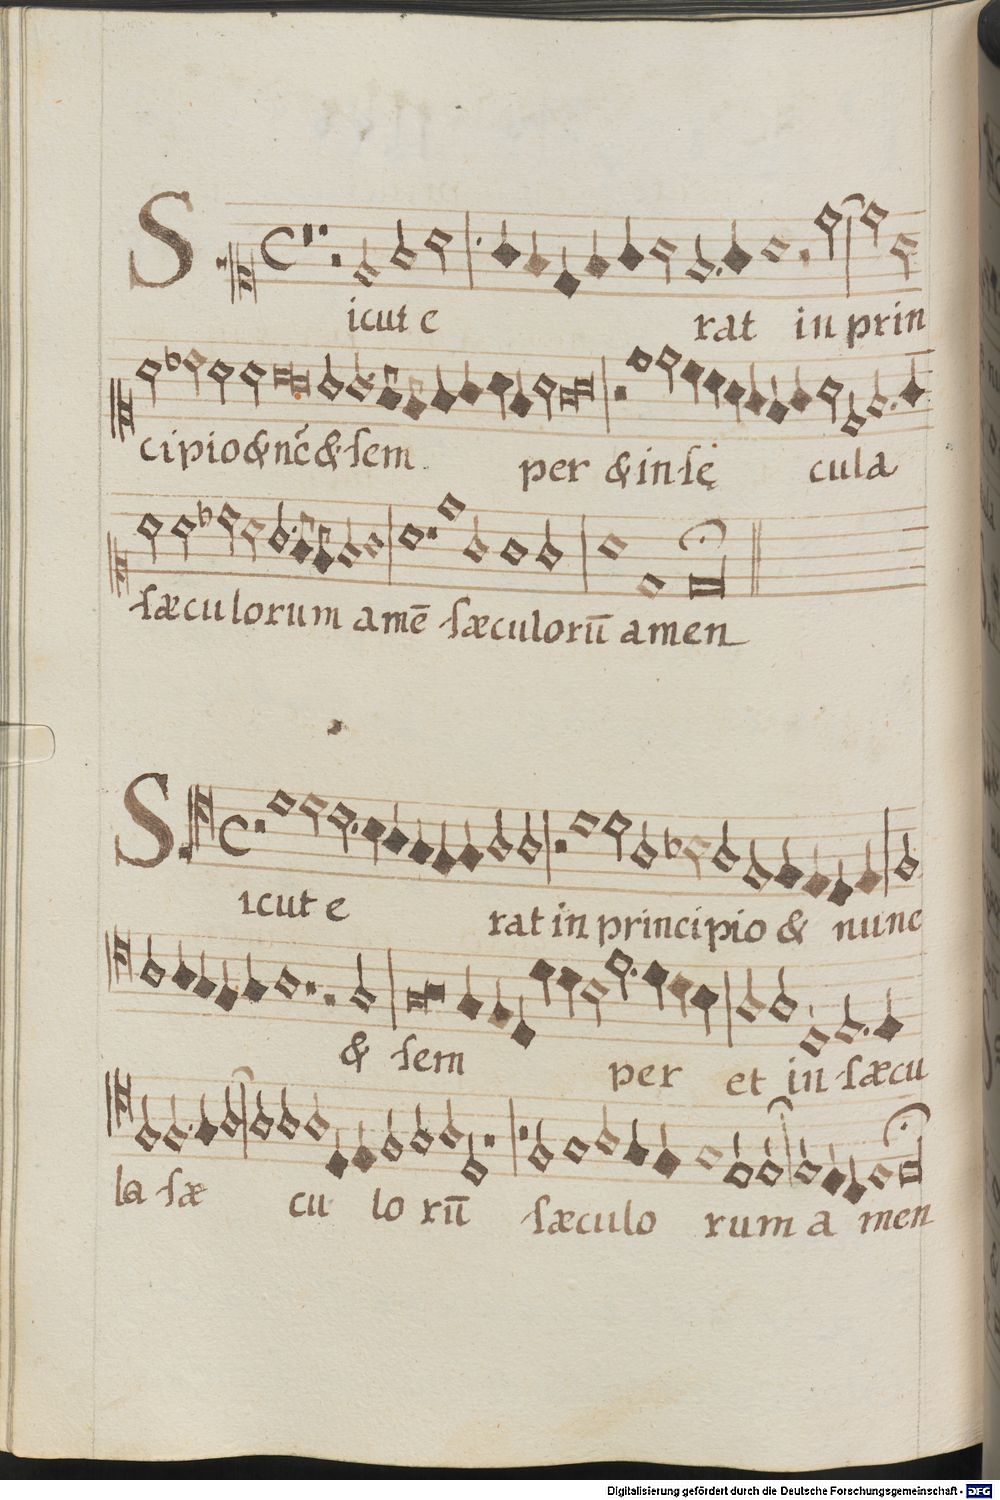 S
icut e rat in prin
cipio & nc̄ & ſem per & in ſę cula
ſæculorum amē ſæculorū amen
S
icut e rat in principio & nunc
& ſem per et in ſæcu
la ſæ cu lo rū ſæculo rum a men
Digitalisierung gefördert durch die Deutsche Forschungsgemeinschaft - DFG